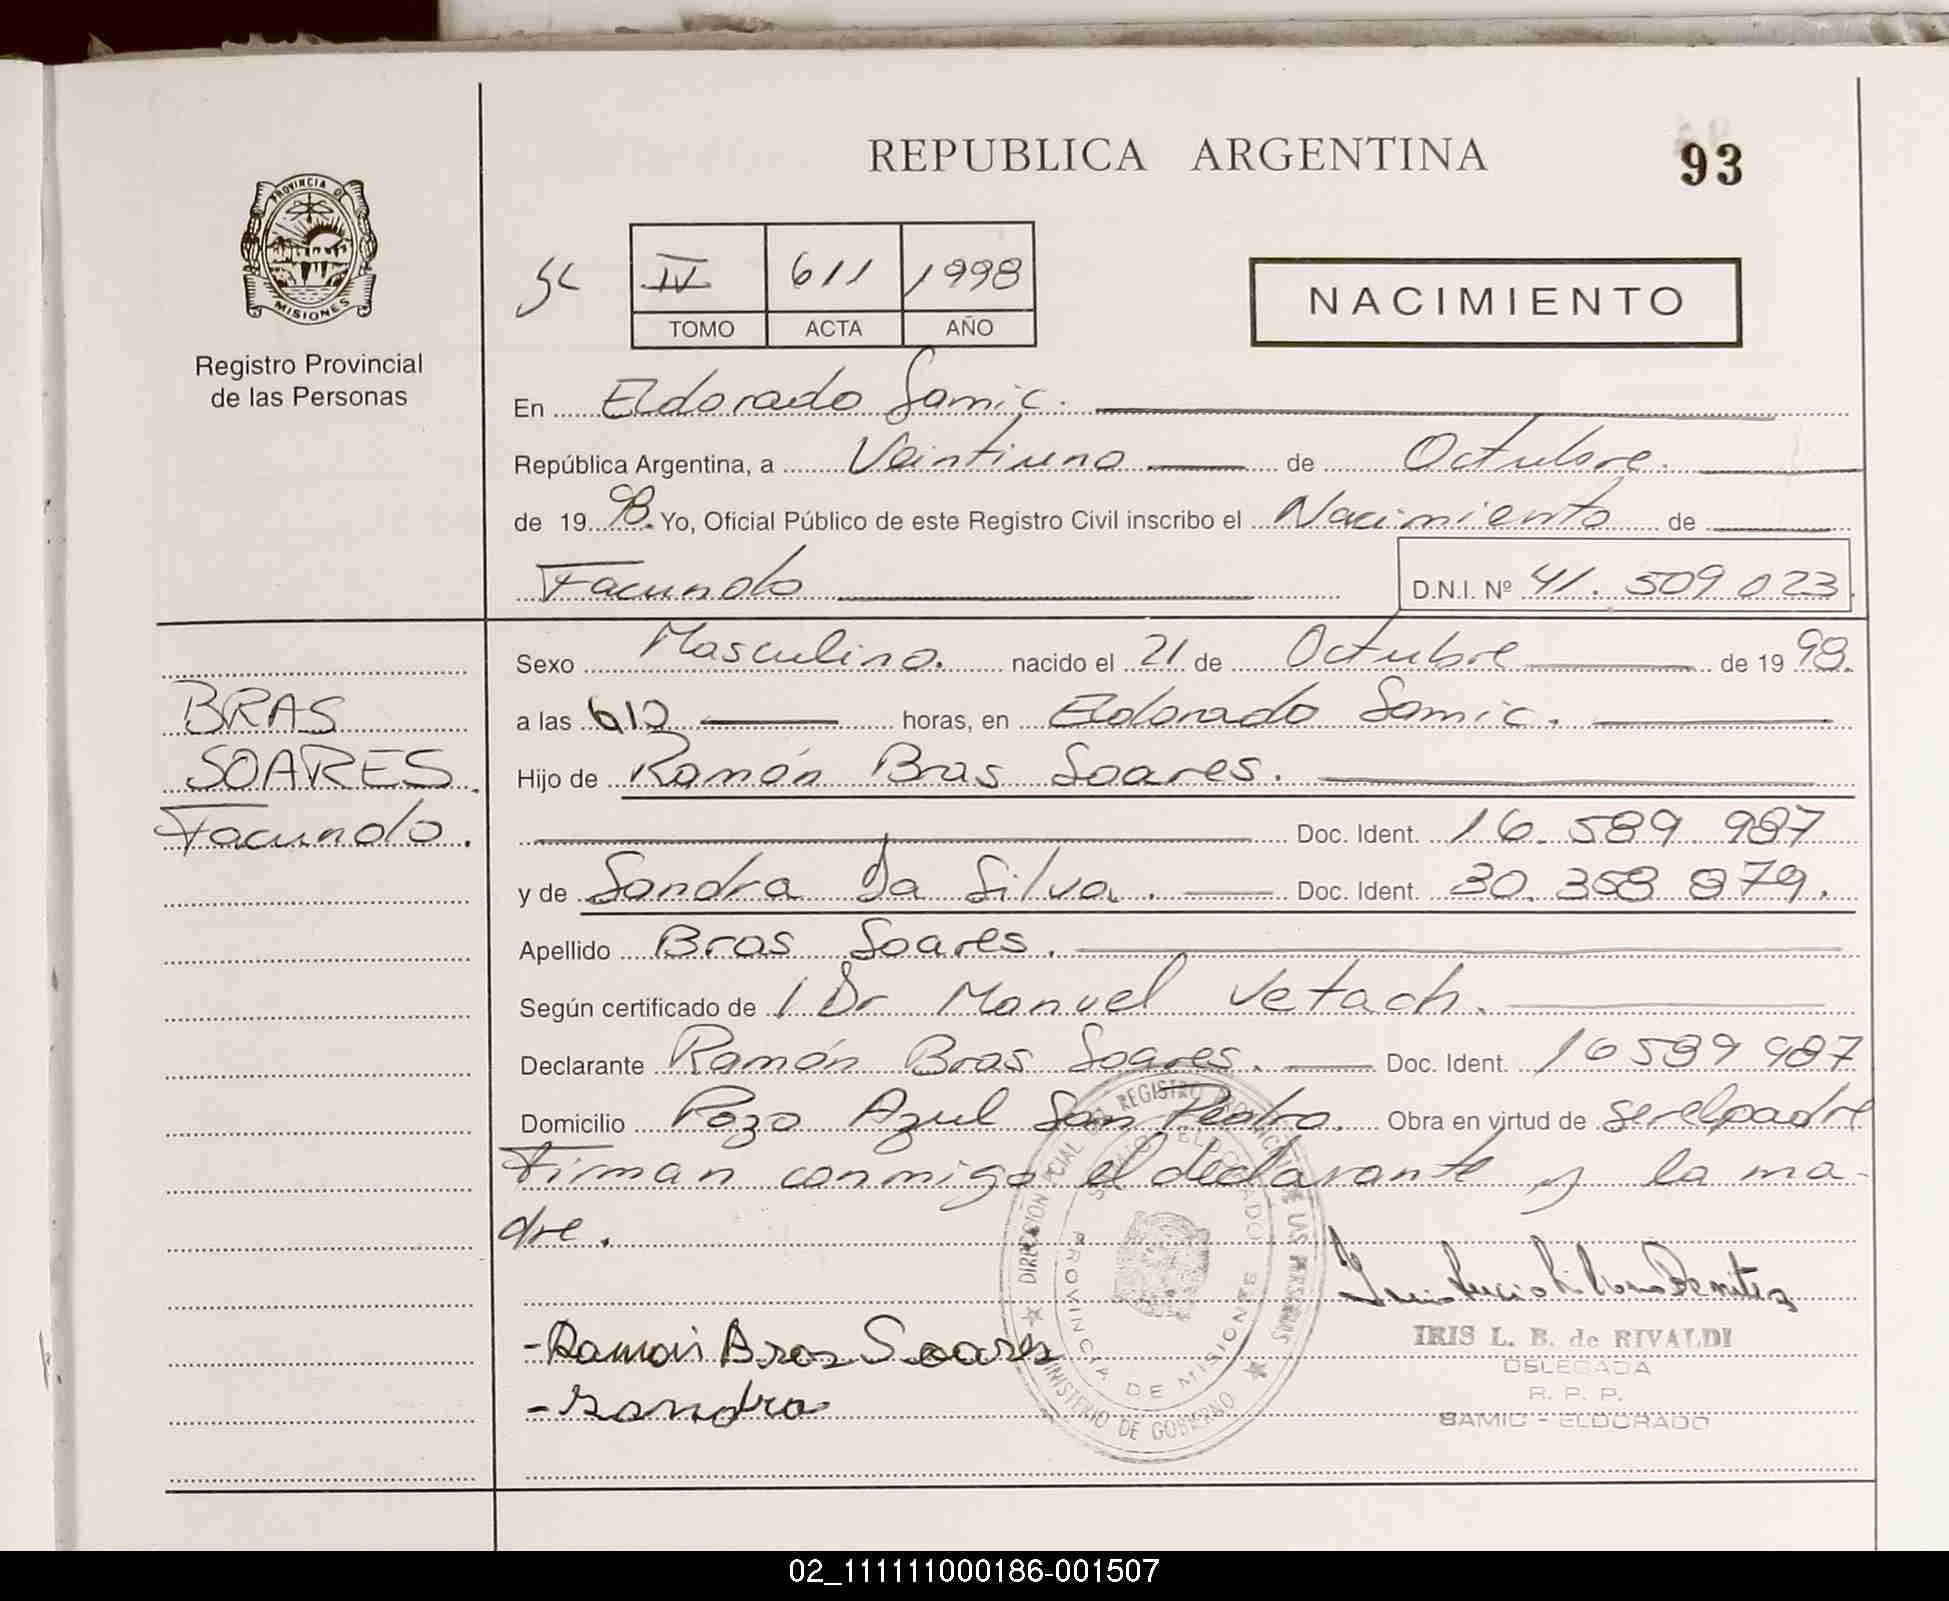 REPUBLICA ARGENTINA
93
PROVINCIA DE
MISIONES
Registro Provincial
de las Personas
IV 611 1998
TOMO ACTA AÑO
NACIMIENTO
En Eldorado Samic.
República Argentina, a Veintiuno de Octubre.
de 19 98. Yo, Oficial Público de este Registro Civil inscribo el Nacimiento de
Facundo D.N.I. Nº 41.509 023
Sexo Masculino. nacido el 21 de Octubre de 19 98.
a las 610 horas, en Eldorado Samic.
Hijo de Ramón Bras Soares.
Doc. Ident. 16.589 987
y de Sandra Da Silva. Doc. Ident. 30.358 879.
Apellido Bras Soares.
Según certificado de / Dr Manuel Vetach.
Declarante Ramón Bras Soares. Doc. Ident. 16 589 987
Domicilio Pozo Azul San Pedro. Obra en virtud de ser el padre
Firman conmigo el declarante y la ma-
dre.
BRAS
SOARES.
Facundo.
-Ramón Bras Soares
-Sandra
DIRECCION PCIAL DEL REGISTRO PROVINCIAL DE LAS PERSONAS
MINISTERIO DE GOBIERNO
PROVINCIA DE MISIONES
IRIS L. B. de RIVALDI
DELEGADA
R. P. P.
SAMIC - ELDORADO
02_111111000186-001507